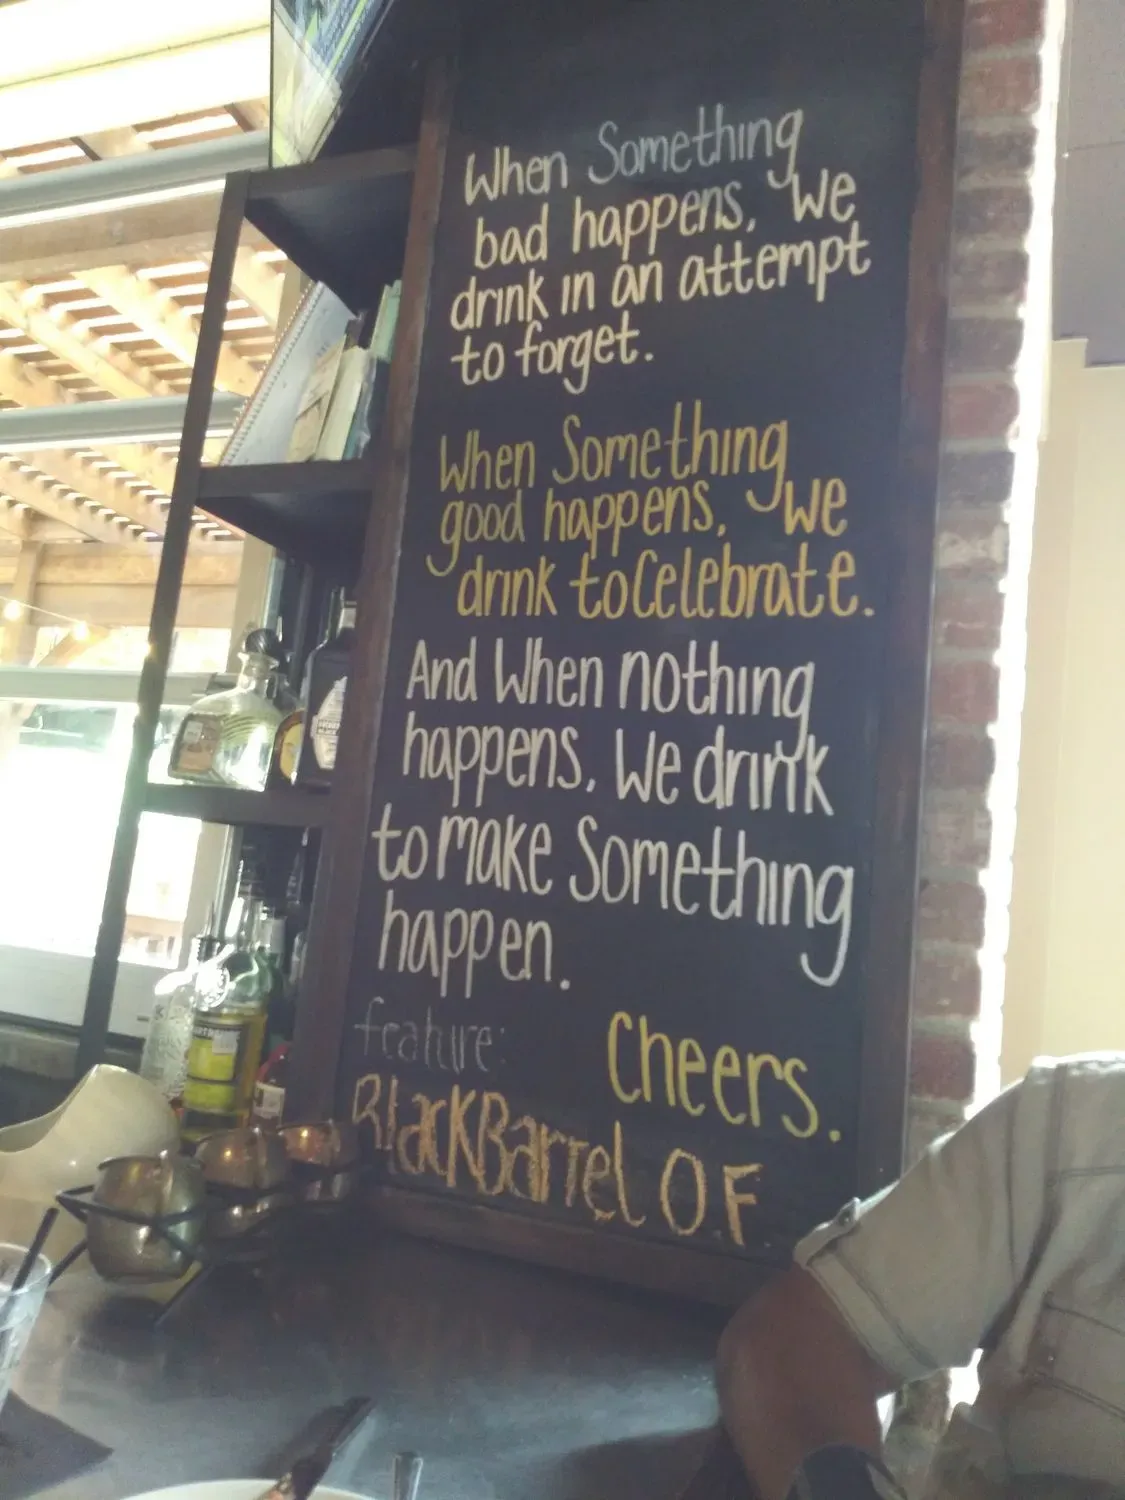 When Something
bad happens, We
drink in an attempt
to forget.
When Something
good happens, We
drink to Celebrate.
And When nothing
happens, We drink
to make Something
happen.
feature:
Cheers.
BlackBarrel O.F